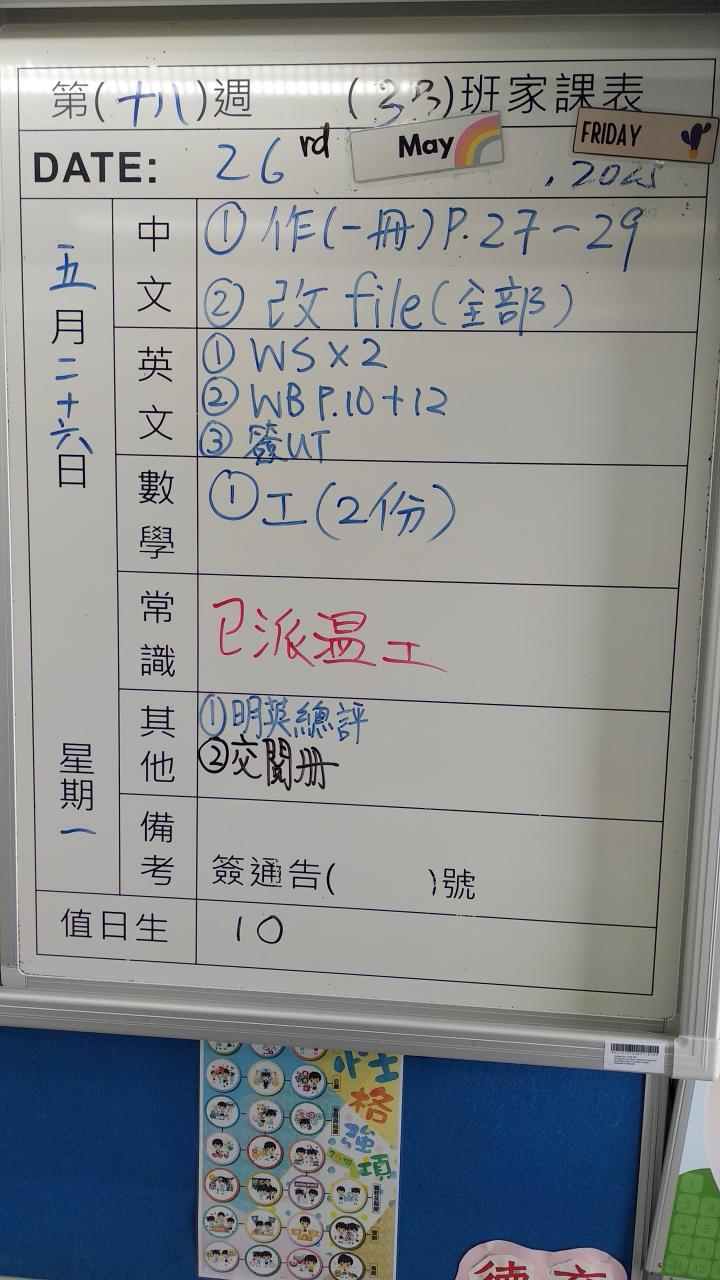 第(十八)週 (3B)班家課表
DATE: 26 rd May FRIDAY , 2025
五月二十六日 星期一
中文
①作(一冊)P.27-29
②改file(全部)
英文
①WS×2
②WB P.10+12
③簽UT
數學
①工(2份)
常識
已派温工
其他
①明英總評
②交閱册
備考
簽通告( )號
值日生
10
性格強項